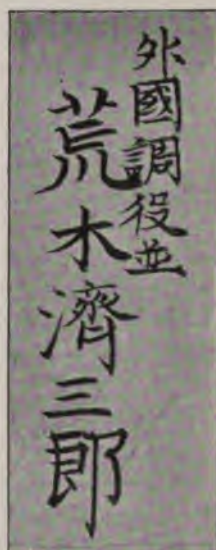 外國調役並
荒木濟三郎